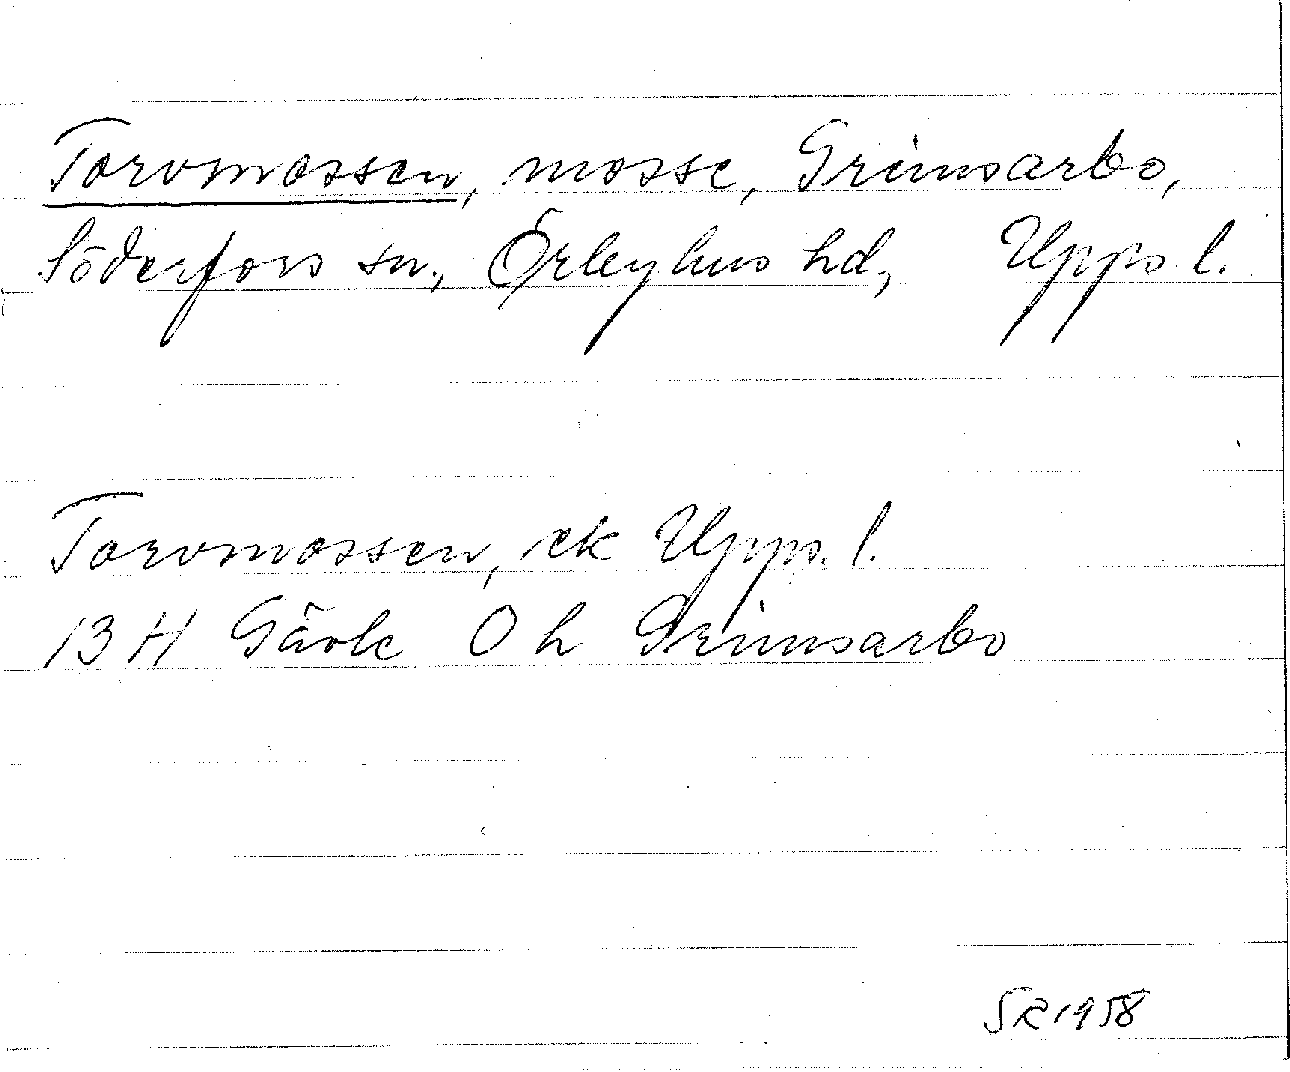 Torvmossen, mosse, Grimsarbo,
Söderfors sn., Örbyhus hd, Upps. l.
Torvmossen, ek Upps. l.
13 H Gävle O h Grimsarbo
SR 1958